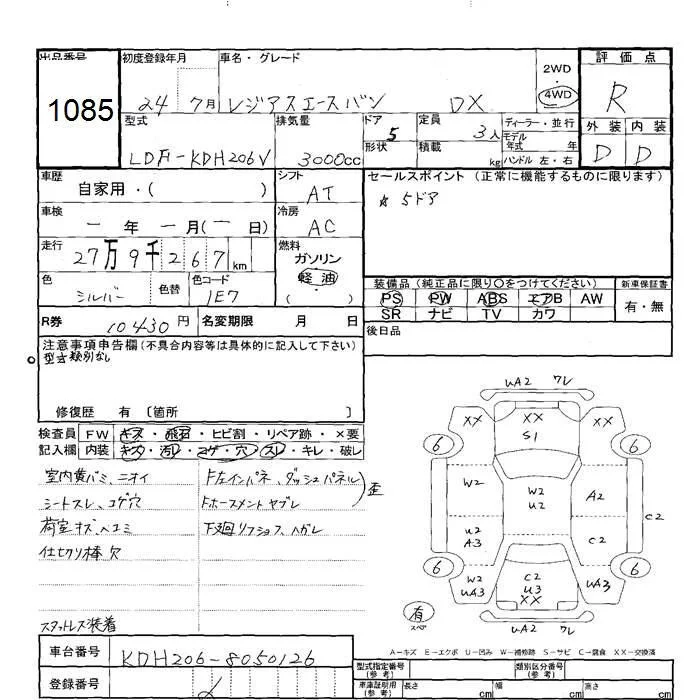 出品番号
1085
初度登録年月
24 7月
車名・グレード
レジアスエースバン DX
2WD
・
4WD
評価点
R
外装 内装
D D
型式
LDF-KDH206V
排気量
3000cc
ドア
5
形状
定員
3人
積載
kg
ディーラー・並行
モデル
年式 年
ハンドル 左・右
車歴
自家用・( )
シフト
AT
セールスポイント (正常に機能するものに限ります)
☆ 5ドア
車検
一 年 一 月(一 日)
冷房
AC
走行
27万9千267km
燃料
ガソリン
軽油
( )
色
シルバー
色替
色コード
1E7
装備品 (純正品に限り○をつけてください)
新車保証書
PS PW ABS エアB AW
SR ナビ TV カワ
有・無
R券
10430円
名変期限 月 日
後日品
注意事項申告欄(不具合内容等は具体的に記入して下さい)
型式類別なし
修復歴 有 〔箇所 〕
検査員
記入欄
FW キズ・飛石・ヒビ割・リペア跡・×要
内装 キズ・汚レ・コゲ・穴・スレ・キレ・破レ
室内黄バミ、ニオイ
シートスレ、コゲ穴
荷室キズ、ヘコミ
仕切り棒欠
スタットレス装着
F左インパネ、ダッシュパネル
Fホースメントヤブレ
歪
下廻りフショク、ハガレ
UA2 ワレ
XX
XX
S1
XX
6
6
W2
W2
U2
A2
C2
U2
A3
C2
6
6
W2
UA3
C2
U3
XX
UA3
有
スペア
UA2 ワレ
A-キズ E-エクボ U-凹み W-補修跡 S-サビ C-腐食 XX-交換済
車台番号
KDH206-8050126
登録番号
型式指定番号
(参考)
類別区分番号
(参考)
車庫証明用
(参考)
長さ cm
幅 cm
高さ cm